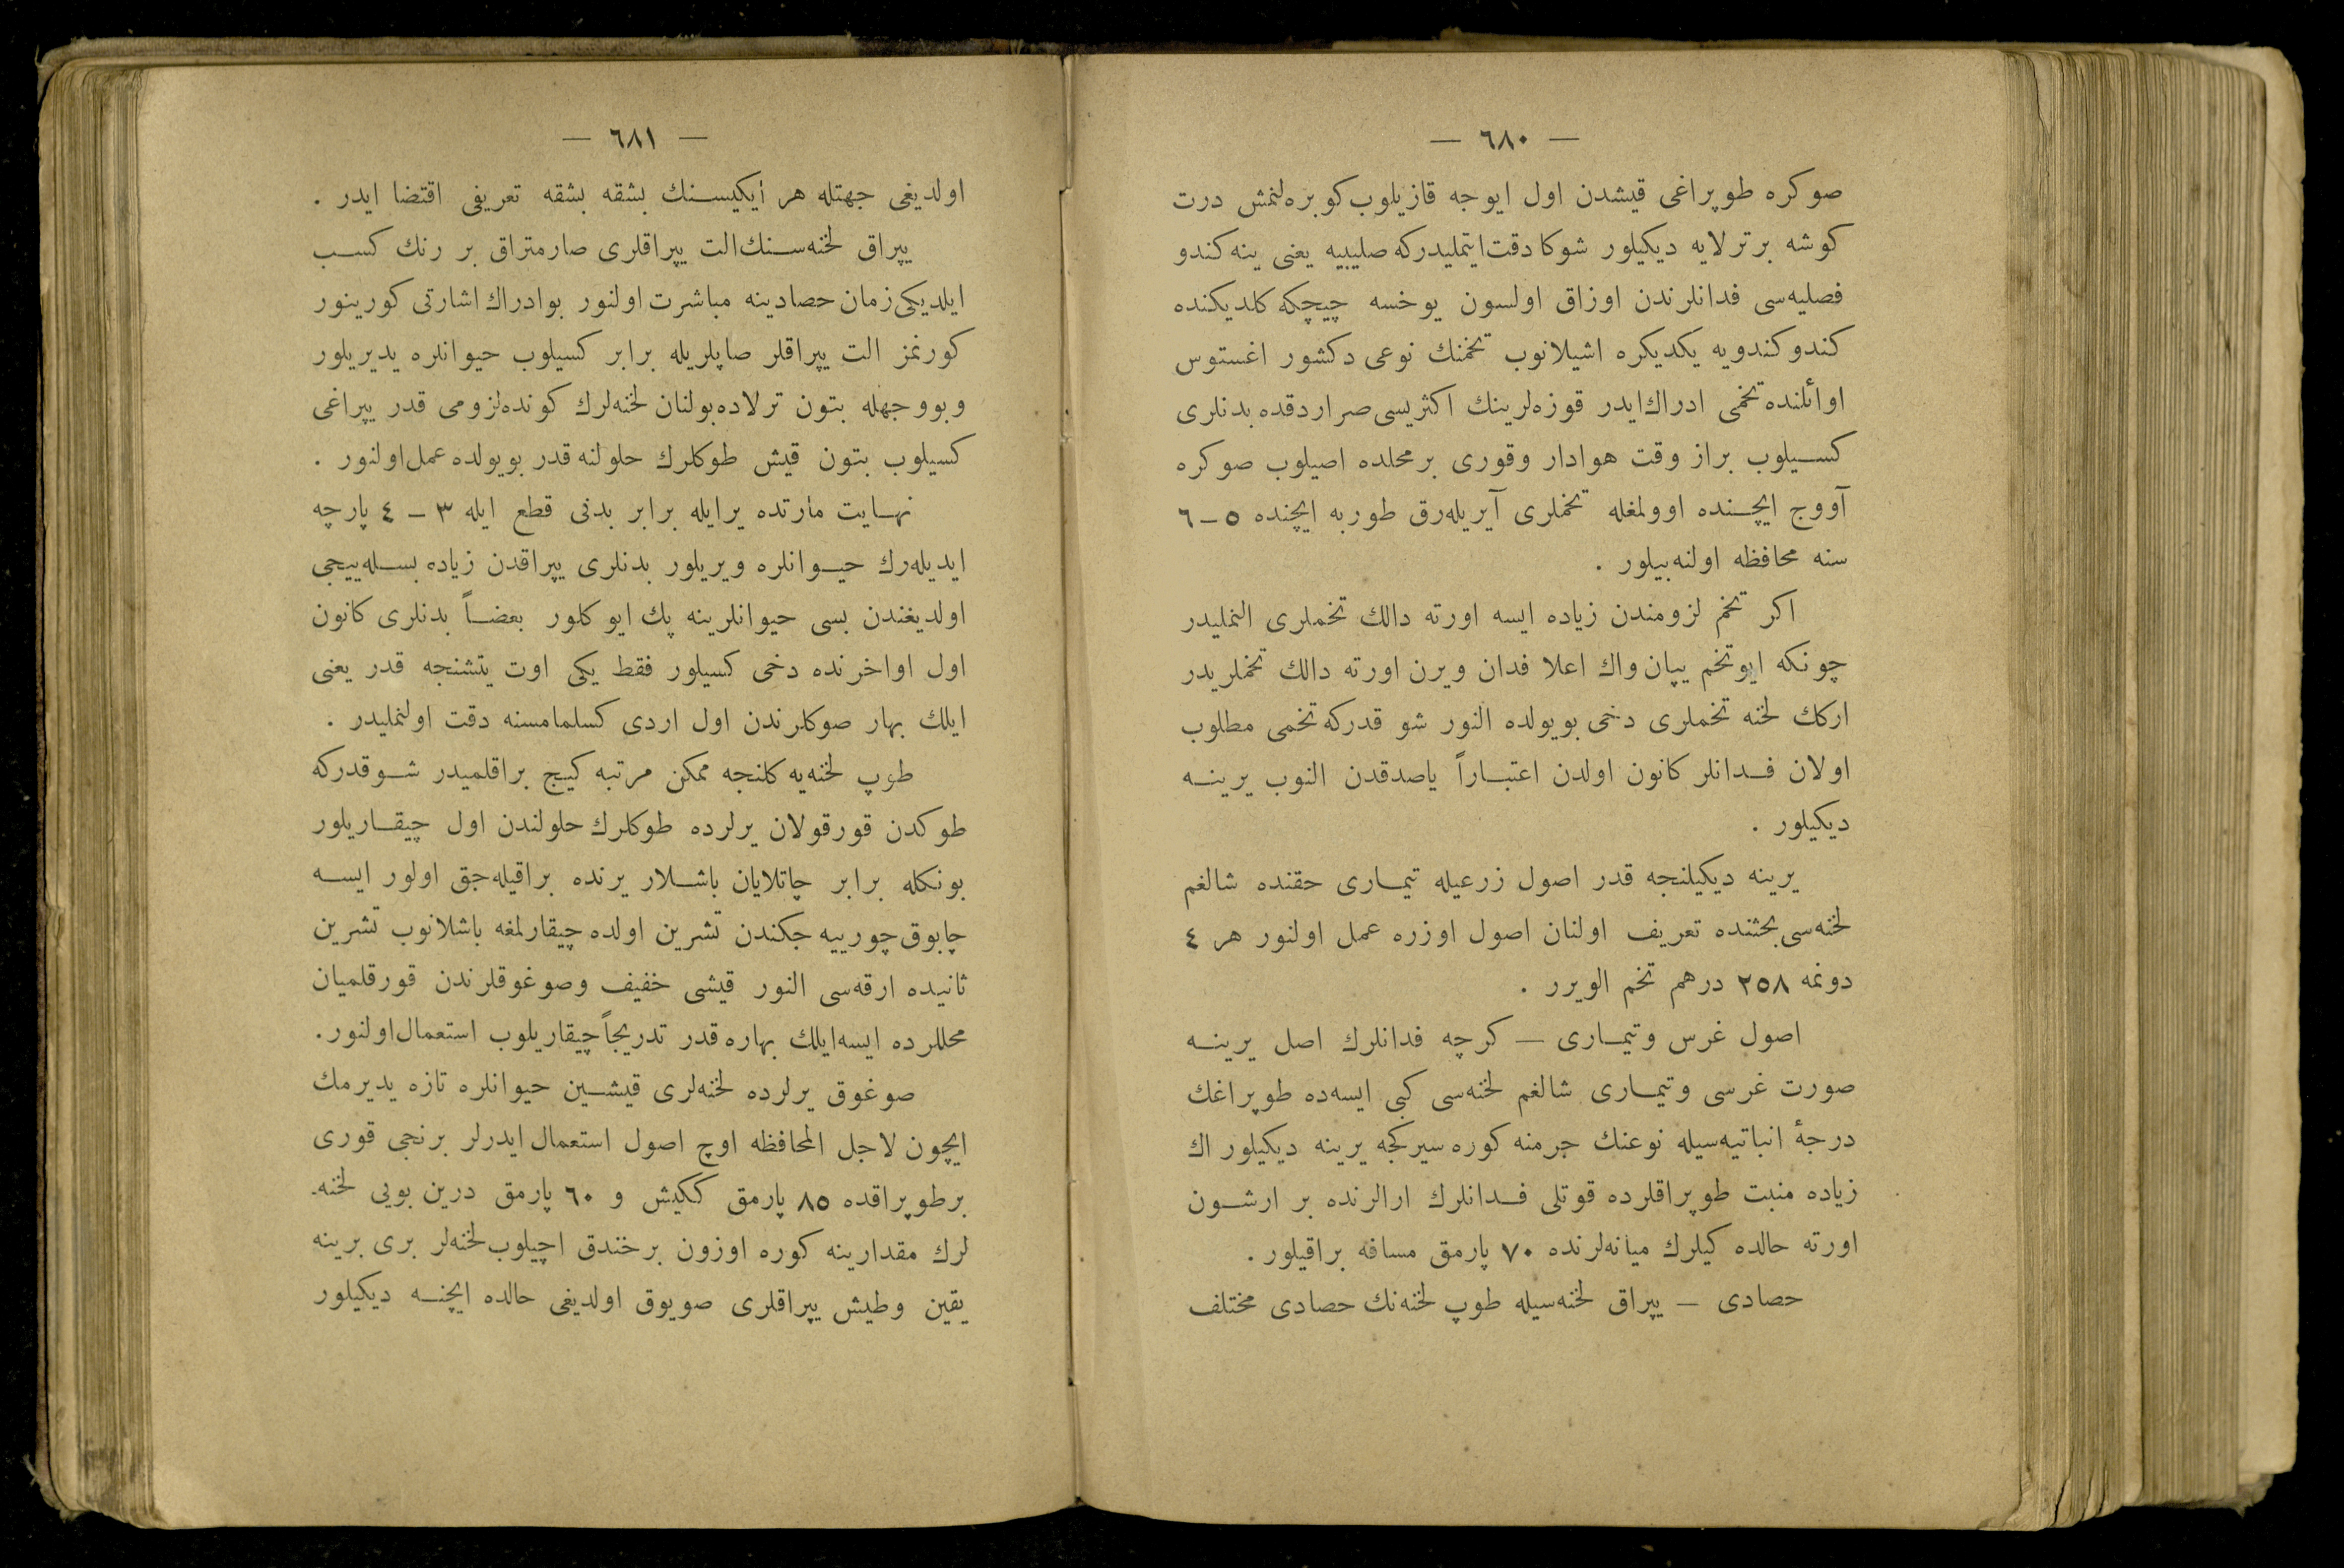 — ٦٨٠ —
صوكره طوپراغی قیشدن اول ایوجه قازیلوب كوبره‌لنمش درت
كوشه بر ترلایه دیكیلور شوكا دقت ایتملیدركه صلیبیه یعنی ینه كندو
فصلیه‌سی فدانلرندن اوزاق اولسون یوخسه چیچكه كلدیكنده
كندو كندویه یكدیكره اشیلانوب تخمنك نوعی دكشور اغستوس
اوائلنده تخمی ادراك ایدر قوزه‌لرینك اكثریسی صراردقده بدنلری
كسیلوب براز وقت هوادار وقوری بر محلده اصیلوب صوكره
آووج ایچنده اوولمغله تخملری آیریله‌رق طوربه ایچنده ٥ – ٦
سنه محافظه اولنه‌بیلور .
اكر تخم لزومندن زیاده ایسه اورته دالك تخملری النملیدر
چونكه ایوتخم یپان واك اعلا فدان ویرن اورته دالك تخملریدر
اركك لخنه تخملری دخی بویولده النور شو قدركه تخمی مطلوب
اولان فدانلر كانون اولدن اعتباراً یاصدقدن النوب یرینه
دیكیلور .
یرینه دیكیلنجه قدر اصول زرعیله تیماری حقنده شالغم
لخنه‌سی بحثنده تعریف اولنان اصول اوزره عمل اولنور هر ٤
دونمه ٢٥٨ درهم تخم الویرر .
اصول غرس وتیماری — كرچه فدانلرك اصل یرینه
صورت غرسی وتیماری شالغم لخنه‌سی كبی ایسه‌ده طوپراغك
درجهٔ انباتیه‌سیله نوعنك جرمنه كوره سیركجه یرینه دیكیلور اك
زیاده منبت طوپراقلرده قوتلی فدانلرك ارالرنده بر ارشون
اورته حالده كیلرك میانه‌لرنده ٧٠ پارمق مسافه براقیلور .
حصادی — یپراق لخنه‌سیله طوپ لخنه‌نك حصادی مختلف
— ٦٨١ —
اولدیغی جهتله هر أیكیسنك بشقه بشقه تعریفی اقتضا ایدر .
یپراق لخنه‌سنك الت یپراقلری صارمتراق بر رنك كسب
ایلدیكی زمان حصادینه مباشرت اولنور بوادراك اشارتی كورینور
كورنمز الت یپراقلر صاپلریله برابر كسیلوب حیوانلره یدیریلور
وبووجهله بتون ترلاده بولنان لخنه‌لرك كونده لزومی قدر یپراغی
كسیلوب بتون قیش طوكلرك حلولنه قدر بویولده عمل اولنور .
نهایت مارتده یرایله برابر بدنی قطع ایله ٣ – ٤ پارچه
ایدیله‌رك حیوانلره ویریلور بدنلری یپراقدن زیاده بسله‌ییجی
اولدیغندن بسی حیوانلرینه پك ایو كلور بعضاً بدنلری كانون
اول اواخرنده دخی كسیلور فقط یكی اوت یتشنجه قدر یعنی
ایلك بهار صوكلرندن اول اردی كسلمامسنه دقت اولنملیدر .
طوپ لخنه‌یه كلنجه ممكن مرتبه كیج براقلمیدر شوقدركه
طوكدن قورقولان یرلرده طوكلرك حلولندن اول چیقاریلور
بونكله برابر چاتلایان باشلار یرنده براقیله‌جق اولور ایسه
چابوق چورییه جكندن تشرین اولده چیقارلمغه باشلانوب تشرین
ثانیده ارقه‌سی النور قیشی خفیف وصوغوقلرندن قورقلمیان
محللرده ایسه ایلك بهاره قدر تدریجاً چیقاریلوب استعمال اولنور.
صوغوق یرلرده لخنه‌لری قیشین حیوانلره تازه یدیرمك
ایچون لاجل المحافظه اوچ اصول استعمال ایدرلر برنجی قوری
برطوپراقده ٨٥ پارمق ككیش و ٦٠ پارمق درین بویی لخنه‌ـ
لرك مقدارینه كوره اوزون برخندق اچیلوب لخنه‌لر بری برینه
یقین وطیش یپراقلری صویوق اولدیغی حالده ایچنه دیكیلور